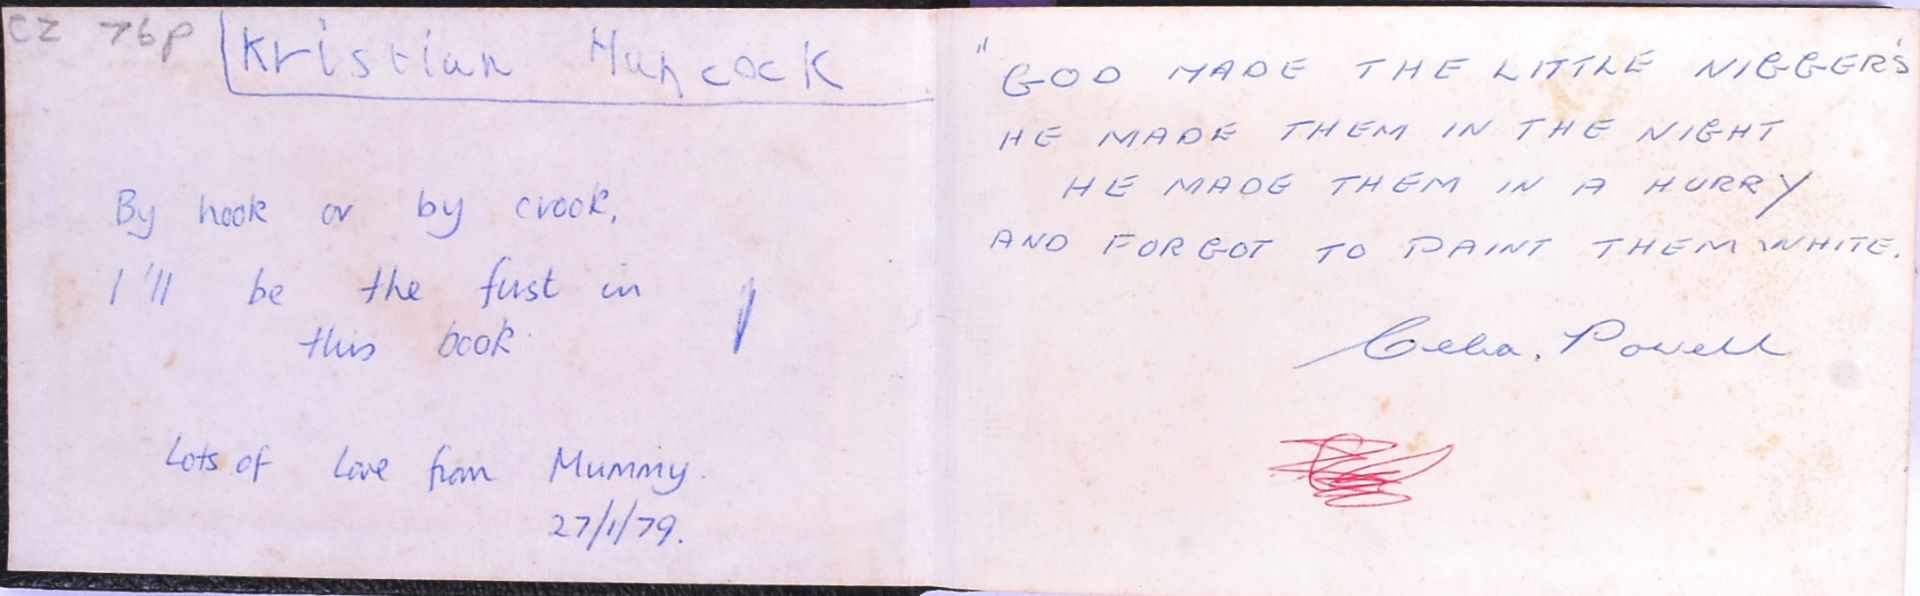 CZ 76p
Kristian Huncock
By hook or by crook,
I'll be the first in
this book.
Lots of love from Mummy.
27/1/79.
"GOD MADE THE LITTLE NIGGER'S
HE MADE THEM IN THE NIGHT
HE MADE THEM IN A HURRY
AND FORGOT TO PAINT THEM WHITE.
Celia. Powell